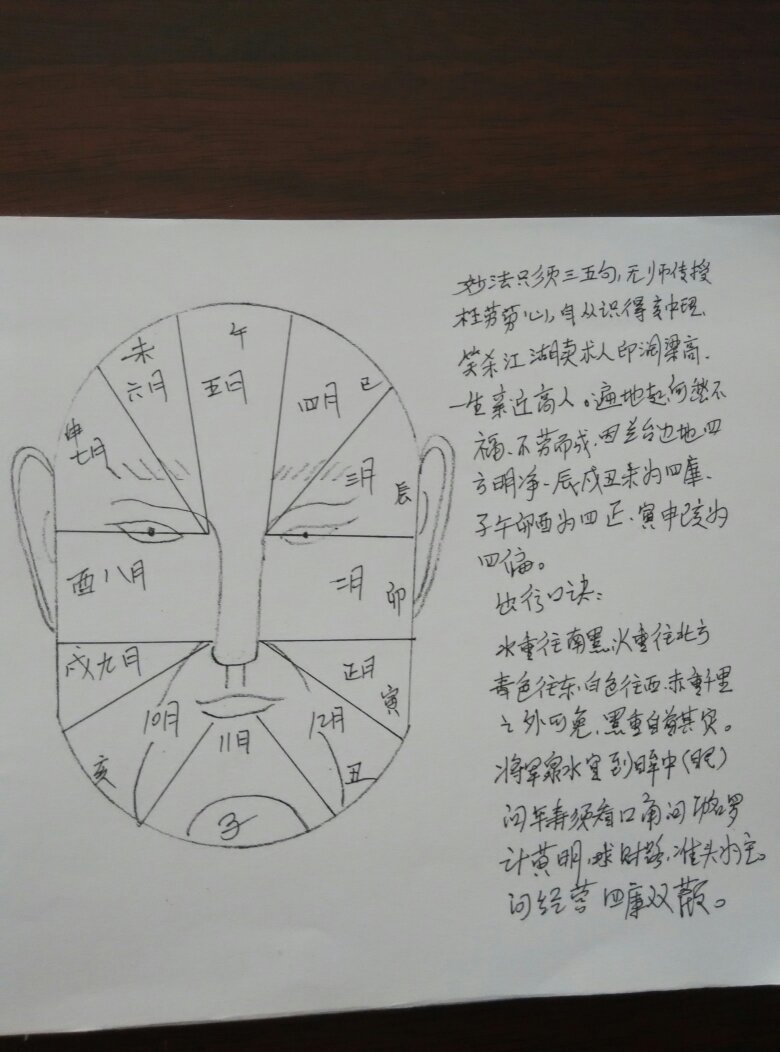 午
未
五月
六月
四月
巳
申
七月
三月
辰
酉八月
二月
卯
戌九月
正月
寅
10月
11月
12月
亥
丑
子
妙法只须三五句,无师传授
枉劳心,自从识得玄中理
笑杀江湖卖术人印润梁高.
一生亲近高人。遍地起何愁不
福.不劳而成.因兰台边地四
方明净.辰戌丑未为四库.
子午卯酉为四正.寅申巳亥为
四偏。
出行口诀:
水重往南黑,火重往北方
青色往东,白色往西.赤重千里
之外可免,黑重自首其灾。
将军泉水宜到眸中(眼)
问年寿须看口角问功名罗
计黄明,求财路,准头为主。
问经营四库双颧。